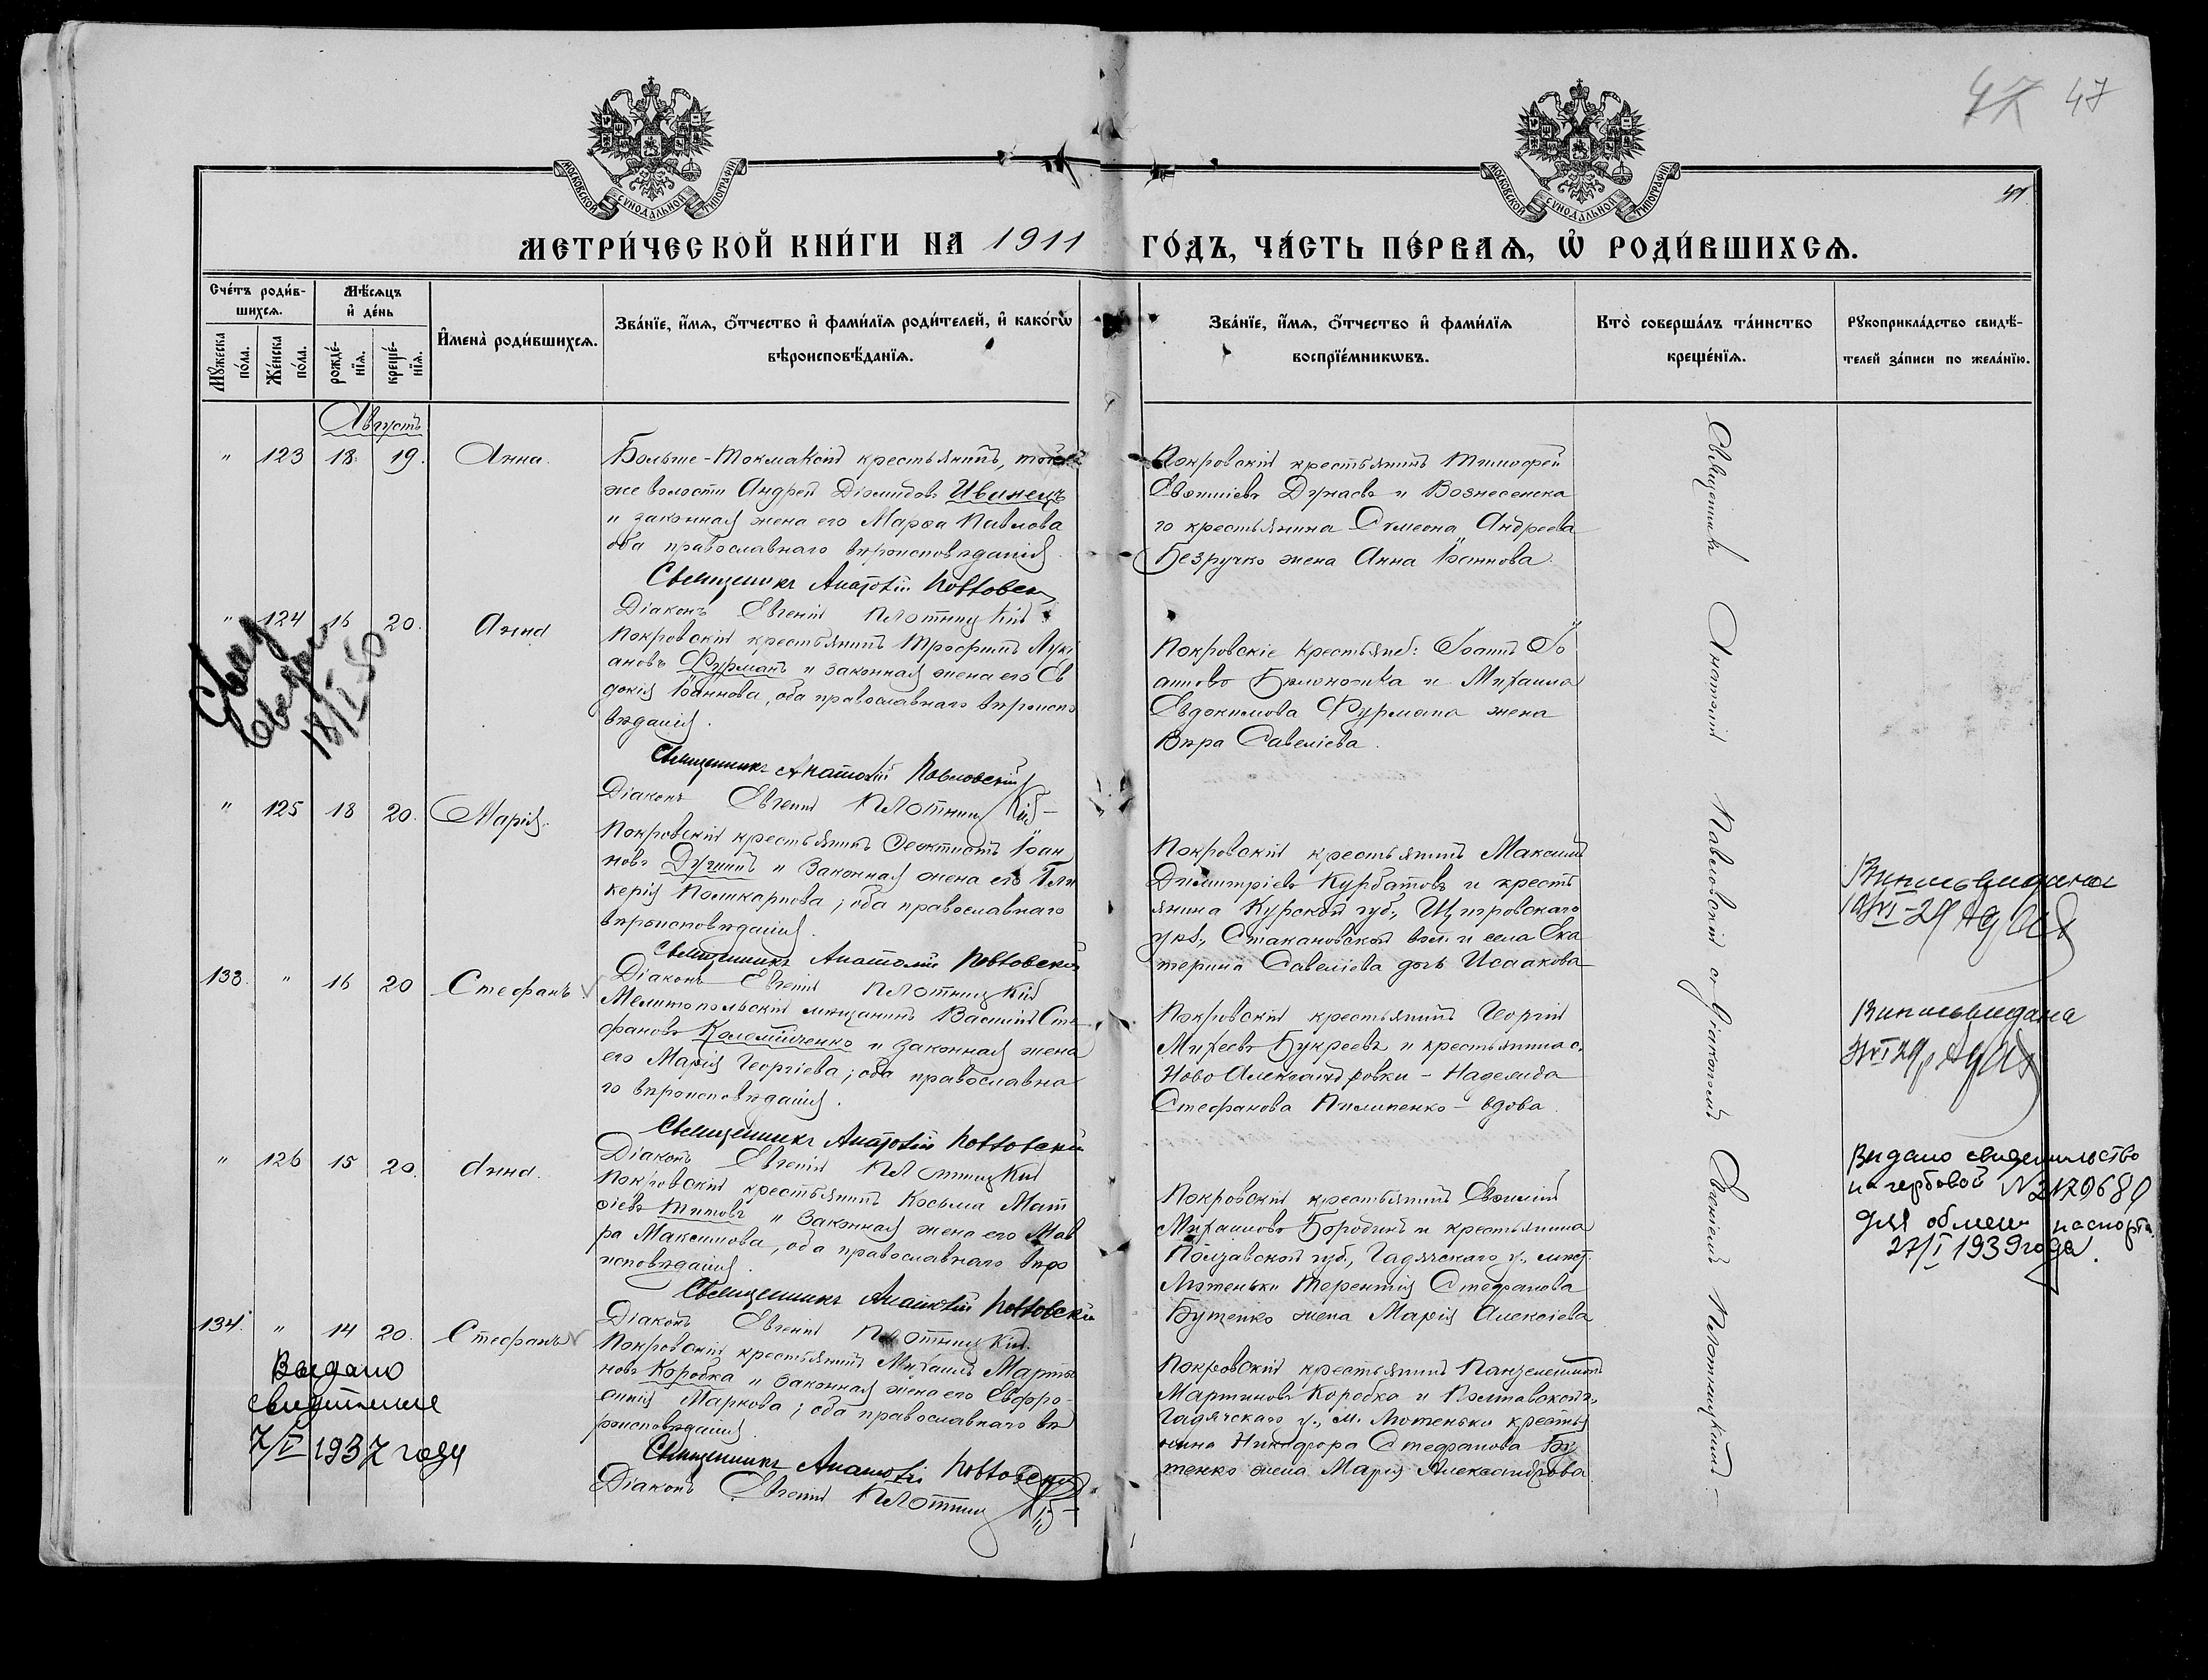 47 47
МОСКОВСКОЙ СУНОДАЛЬНОЙ ТИПОГРАФІИ.
МОСКОВСКОЙ СУНОДАЛЬНОЙ ТИПОГРАФІИ.
МЕТРИ́ЧЕСКОЙ КНИ́ГИ НА 1911 ГО́ДЪ, ЧА́СТЬ ПЕ́РВАѦ, Ѡ҆ РОДИ́ВШИХСѦ.
Сче́тъ роди́в-
шихсѧ.
Мꙋ́жеска по́ла.
Же́нска по́ла.
Мѣ́сѧцъ
и҆ де́нь
рожде́-
нїѧ.
креще́-
нїѧ.
И҆мена̀ роди́вшихсѧ.
Зва́нїе, и҆́мѧ, ѻ҆́тчество и҆ фами́лїѧ роди́телей, и҆ како́гѡ
вѣроисповѣ́данїѧ.
Зва́нїе, и҆́мѧ, ѻ҆́тчество и҆ фами́лїѧ
воспрїе́мникѡвъ.
Кто̀ соверша́лъ та́инство
креще́нїѧ.
Рꙋкоприкла́дство свидѣ́-
телей за́писи по жела́нїю.
Августъ
" 123 18. 19. Анна.
Больше-Токмакскій крестьянинъ, той
же волости Андрей Діомидовъ Иванецъ
и законная жена его Марѳа Павлова
оба православнаго вѣроисповѣданія.
Священникъ Анатолій Павловскій
Діаконъ Евгеній Плотницкій
Покровскій крестьянинъ Тимоѳей
Дунаевъ и Вознесенска
го крестьянина Сумеона Андреева
Безручко жена Анна Іоаннова.
" 124 16 20. Анна
18/I 50
Покровскій крестьянинъ Трофимъ Лукі
ановъ Фурманъ и законная жена его Ев
докія Іоаннова, оба православнаго вѣроиспо
вѣданія.
Священникъ Анатолій Павловскій
Діаконъ Евгеній Плотницкій
Покровскіе крестьяне: Іоаннъ Іо
анновъ Бѣлоносика и Михаила
Евдокимова Фурмана жена
Вѣра Савеліева.
" 125 18 20. Марія.
Покровскій крестьянинъ Ѳеоктистъ Іоан
новъ и законная жена его Гли
керія Поликарпова; оба православнаго
вѣроисповѣданія.
Священникъ Анатолій Павловскій
Діаконъ Евгеній Плотницкій
Покровскій крестьянинъ Максимъ
Димитріевъ Курбатовъ и кресть
янина Курской губ., Щигровскаго
уѣз., Стакановской вол. и села Ека
терина Савеліева дочь Исаакова
133. " 16 20 Стефанъ
Мелитопольскій мещанинъ Василій Сте
фановъ Коломійченко и законная жена
его Марія Георгіева; оба православна
го вѣроисповѣданія.
Священникъ Анатолій Павловскій
Діаконъ Евгеній Плотницкій
Покровскій крестьянинъ Георгій
Михеевъ Букреевъ и крестьянина с.
Ново Александровки - Надежда
Стефанова Пилипенко - вдова.
" 126 15 20. Анна.
Покровскій крестьянинъ Косьма Мат
ѳіевъ Титовъ и законная жена его Мав
ра Максимова, оба православнаго вѣро
исповѣданія.
Священникъ Анатолій Павловскій
Діаконъ Евгеній Плотницкій
Покровскій крестьянинъ
Михаиловъ Бородинъ и крестьянина
Полтавской губ., Гадячскаго у., мѣст.
Лютеньки Терентія Стефанова
Бутенко жена Марія Алексіева
Видано свидетельство
на гербовой N 2179681
для обмен паспорта
27/I 1939 года.
134. " 14 20. Стефанъ
Выдано
7/V 1937 году
Покровскій крестьянинъ Михаилъ Марты
новъ Коробка и законная жена его Евфро-
синія Маркова; оба православнаго вѣ
роисповѣданія
Священникъ Анатолій Павловскій
Діаконъ Евгеній Плотницкій
Покровскій крестьянинъ Пантелеимонъ
Мартиновъ Коробка и Полтавской г.
Гадячскаго у., м. Лютеньки крестья
нина Никифора Стефанова Бу
тенко жена Марія Александрова
Священникъ Анатолій Павловскій съ діакономъ Евгеніемъ Плотницкимъ.